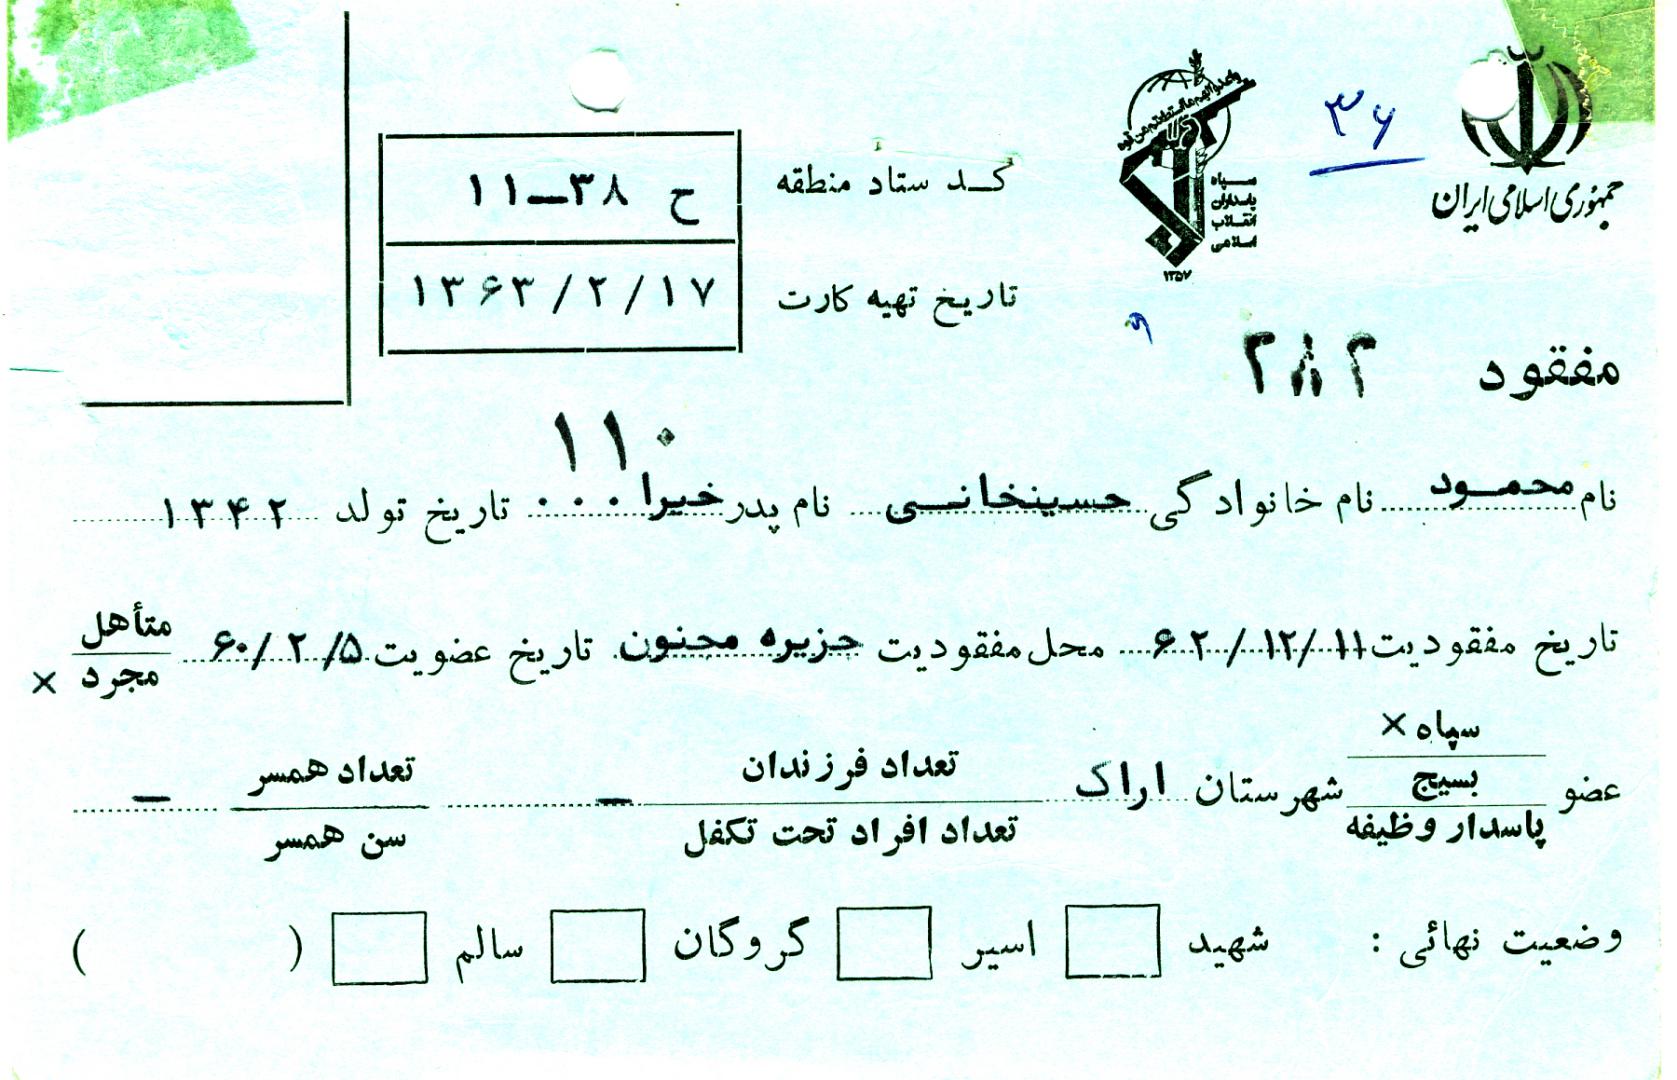 جمهوری اسلامی ایران
۳۶
سپاه
پاسداران
انقلاب
اسلامی
۱۳۵۷
کد ستاد منطقه ح ۳۸-۱۱
تاریخ تهیه کارت ۱۳۶۳/۲/۱۷
مفقود ۲۸۲
۱۱۰
نام محمود نام خانوادگی حسینخانی نام پدر خیرا... تاریخ تولد ۱۳۴۲
تاریخ مفقودیت ۶۲/۱۲/۱۱ محل مفقودیت جزیره مجنون تاریخ عضویت ۶۰/۲/۵ متأهل
مجرد ×
عضو سپاه ×
بسیج
پاسدار وظیفه
شهرستان اراک تعداد فرزندان –
تعداد افراد تحت تکفل
تعداد همسر –
سن همسر
وضعیت نهائی : شهید اسیر گروگان سالم ( )